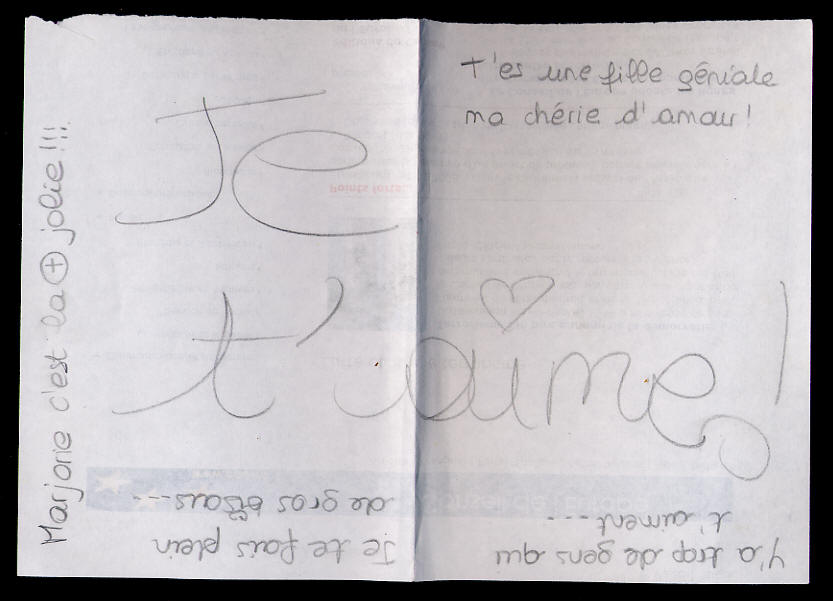 t'es une fille géniale
ma chérie d'amour !
Je
t'aime !
Marjorie c'est la + jolie !!!
Je te fais plein
de gros bisous---
Y'a trop de gens qui
t'aiment ---